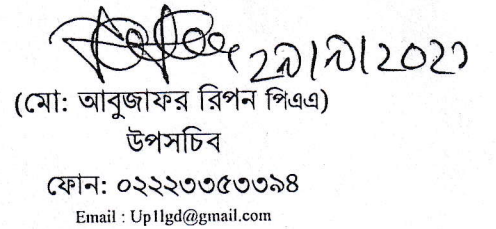 ২৯/৯/২০২১
(মো: আবুজাফর রিপন পিএএ)
উপসচিব
ফোন: ০২২২৩৩৫৩৩৯৪
Email : Up1lgd@gmail.com